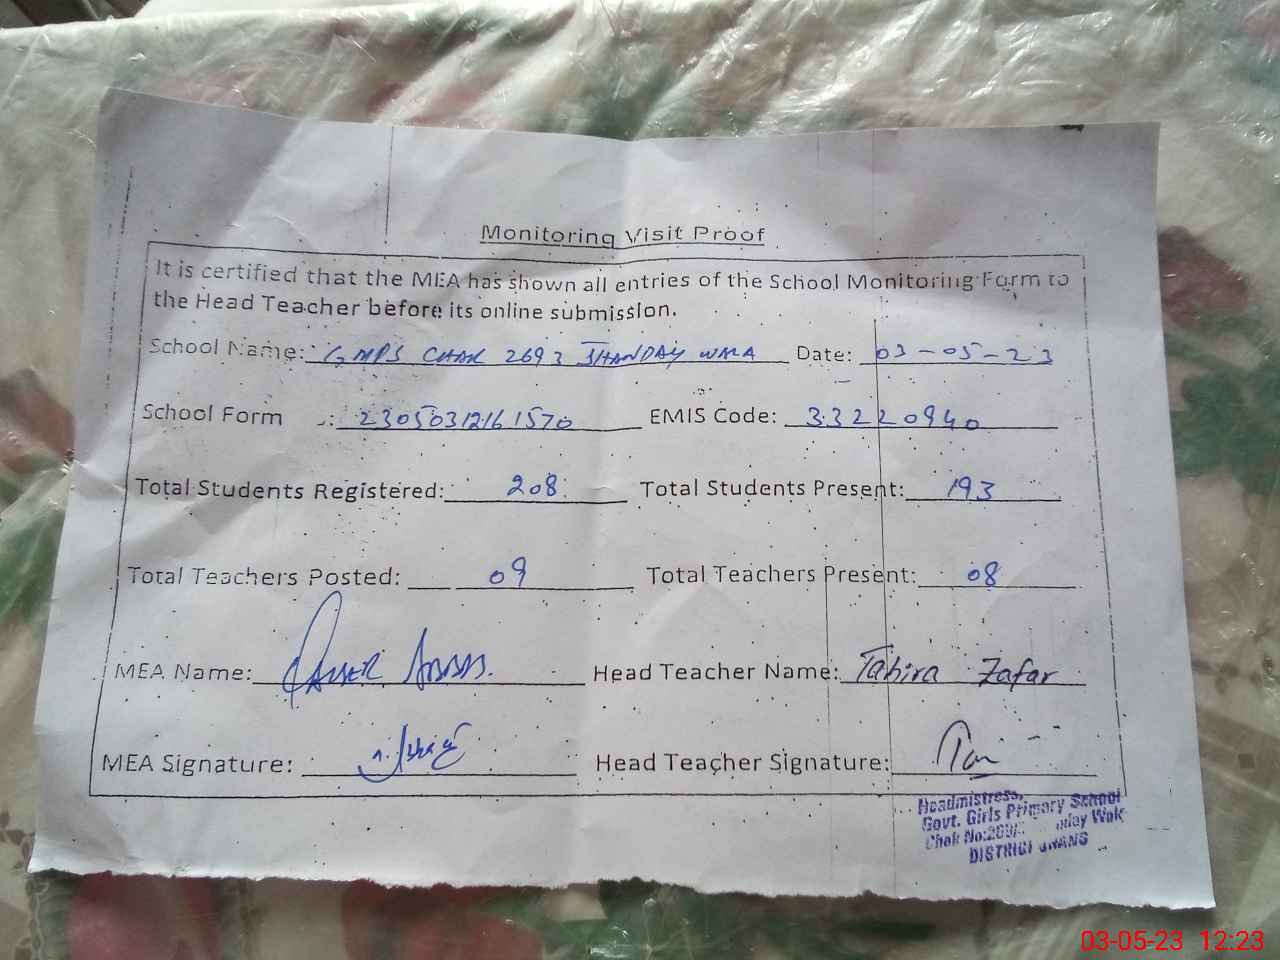 Monitoring Visit Proof
It is certified that the MEA has shown all entries of the School Monitoring Form to
the Head Teacher before its online submission.
School Name: GMPS CHAK 2693 JHANDAY WALA Date: 03-05-23
School Form .: 23050312161570 EMIS Code: 33220940
Total Students Registered: 208 Total Students Present: 193
Total Teachers Posted: 09 Total Teachers Present: 08
MEA Name: QAISER ABBAS. Head Teacher Name: Tahira Zafar
MEA Signature: Head Teacher Signature:
Headmistress,
Govt. Girls Primary School
Chak No:
DISTRICT
03-05-23 12:23